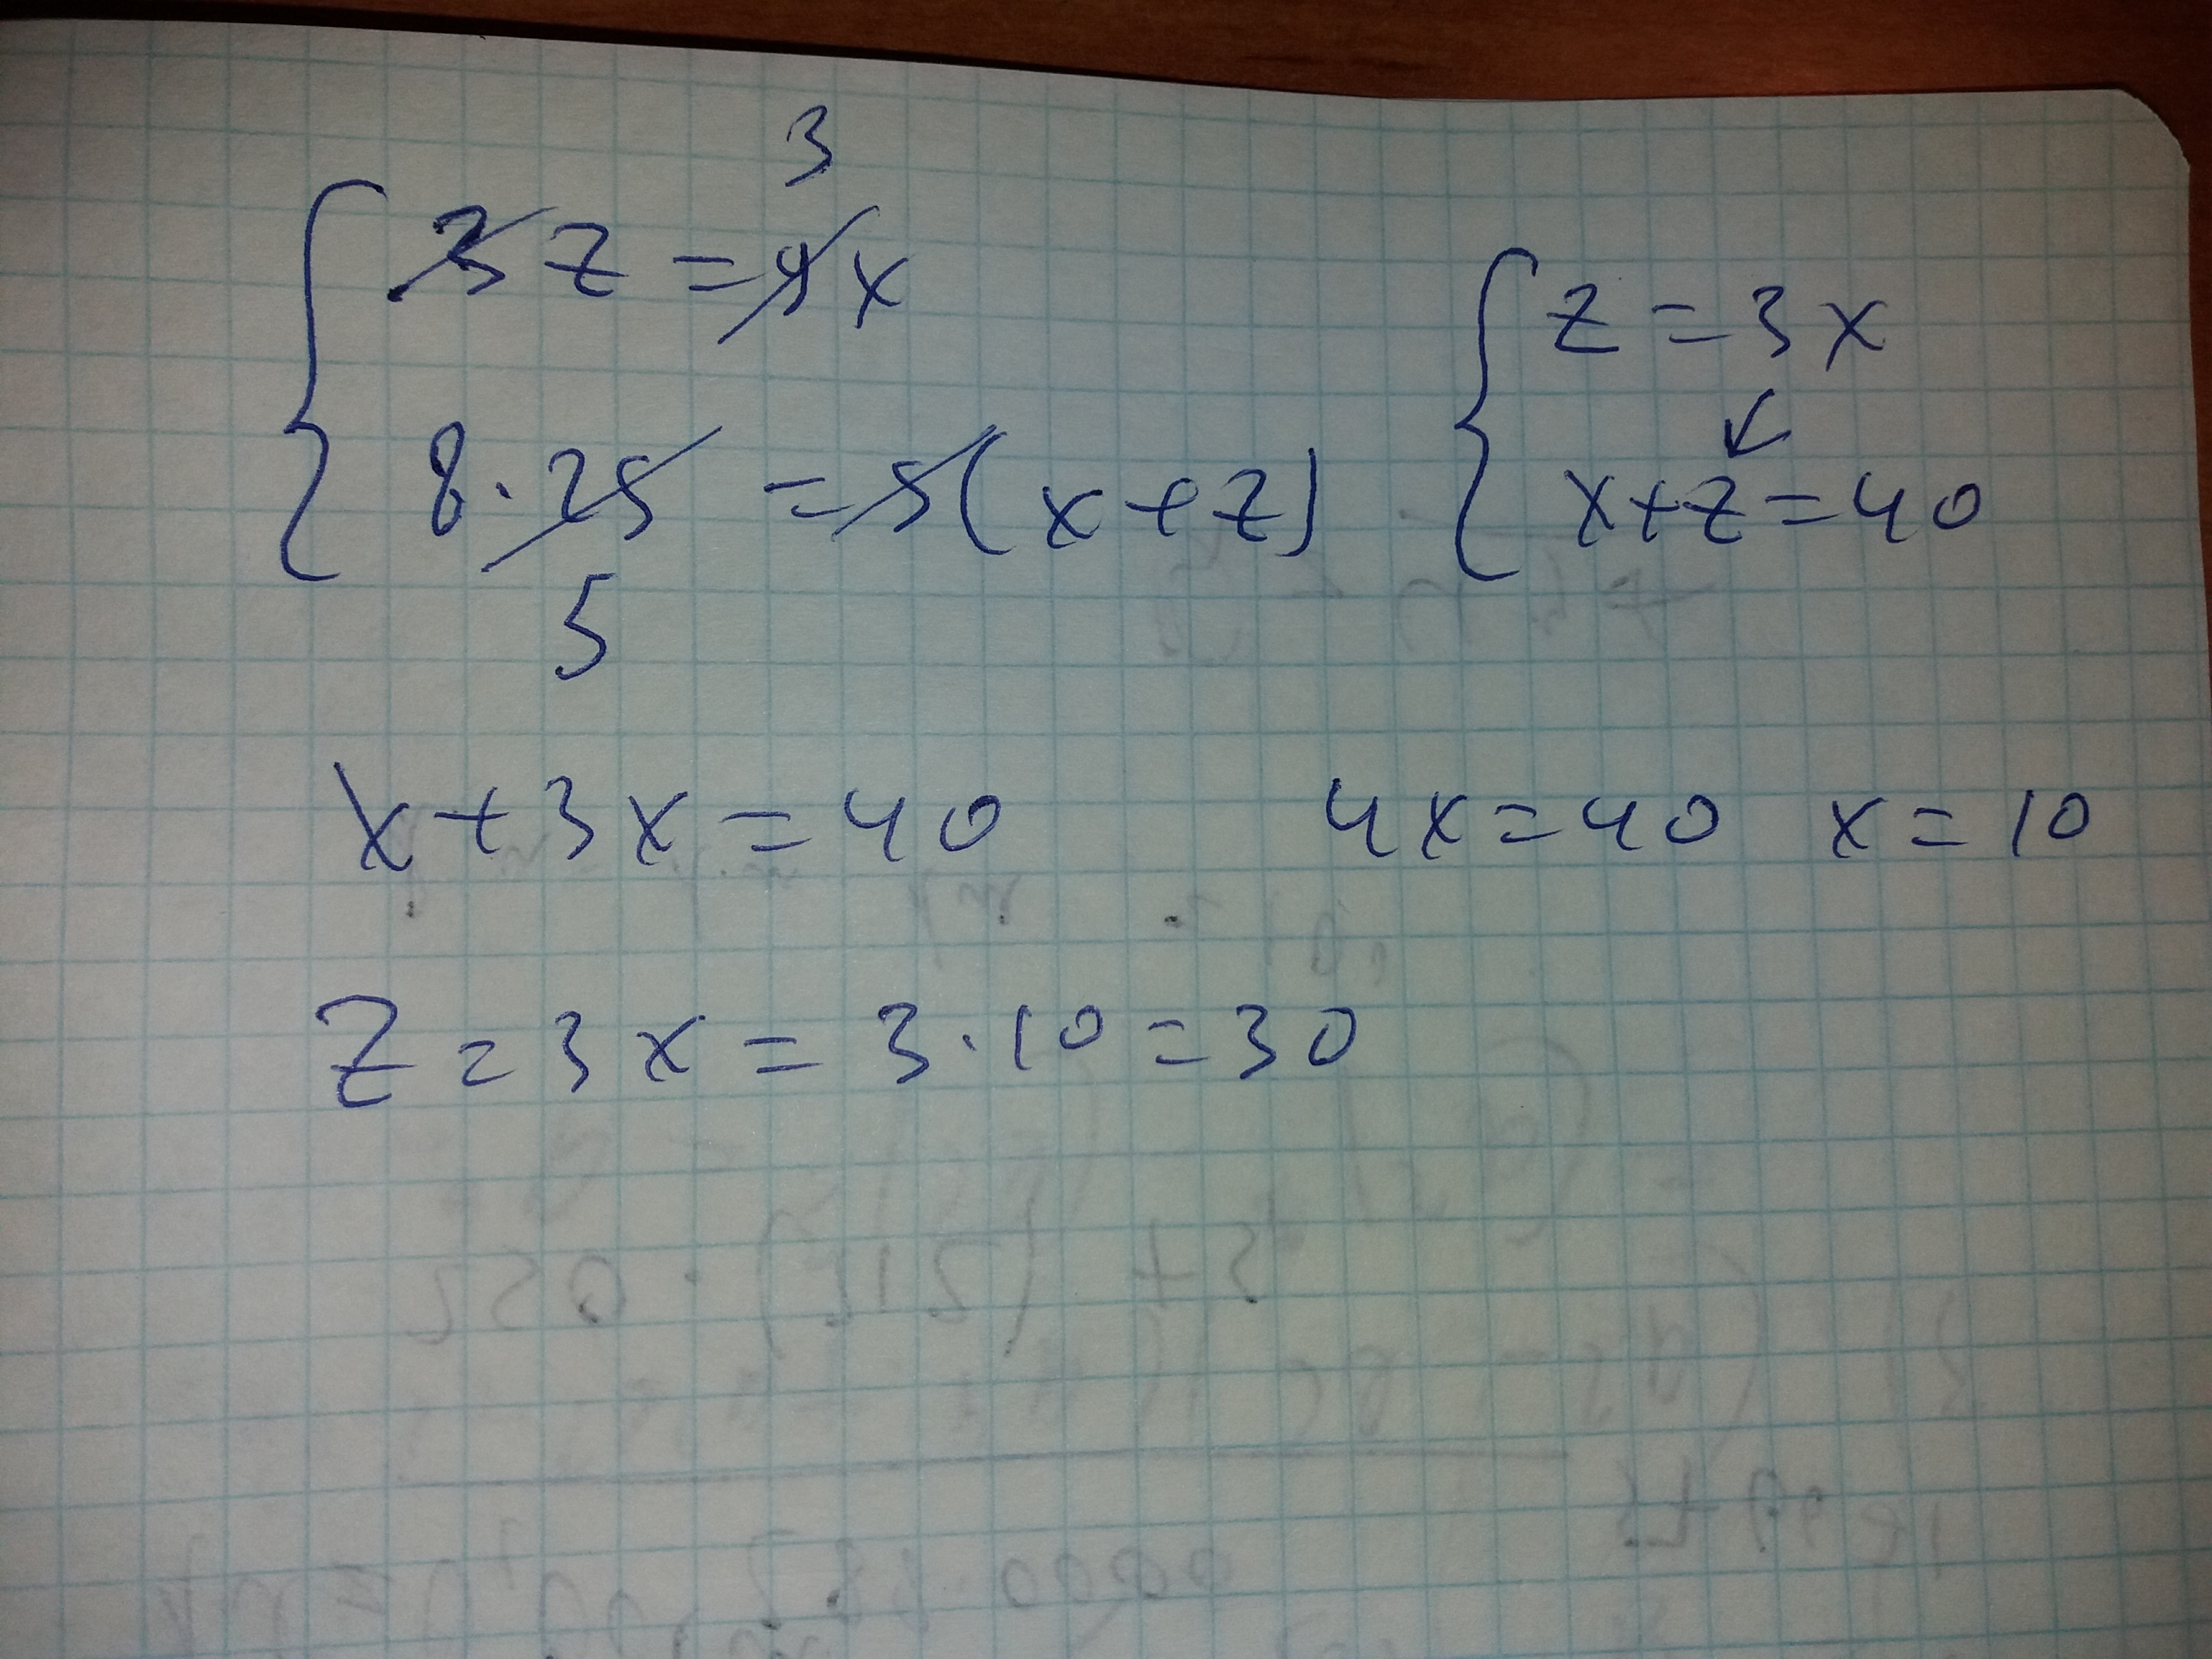 3
3z = 9x
8·25 = 5(x+z)
5
z = 3x
x+z = 40
x+3x = 40 4x = 40 x = 10
z = 3x = 3·10 = 30